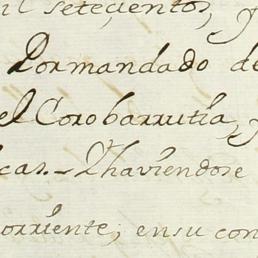 il seteçientos, y
Pormandado de
el Corobarrutia, y
cas. Yhaviendose
orriente, ensu con